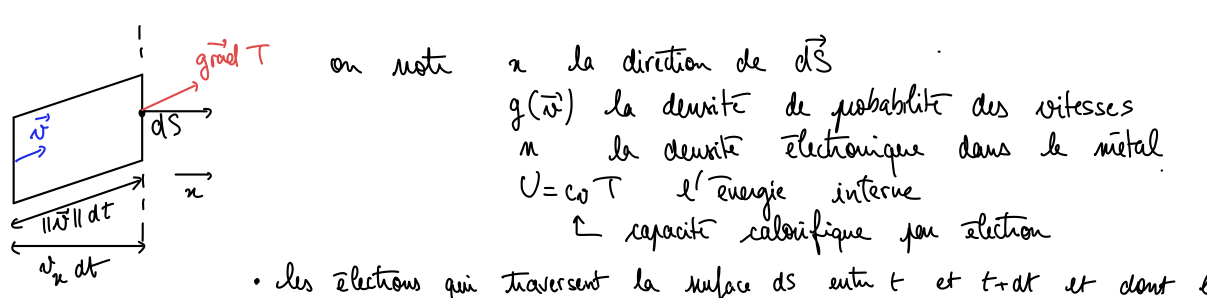 grad T
on note x la direction de dS
v
dS
g(v) la densité de probabilité des vitesses
n la densité électronique dans le métal
x
U = c₀ T l'énergie interne
||v|| dt
↑ capacité calorifique par électron
vₓ dt
• les électrons qui traversent la surface dS entre t et t+dt et dont